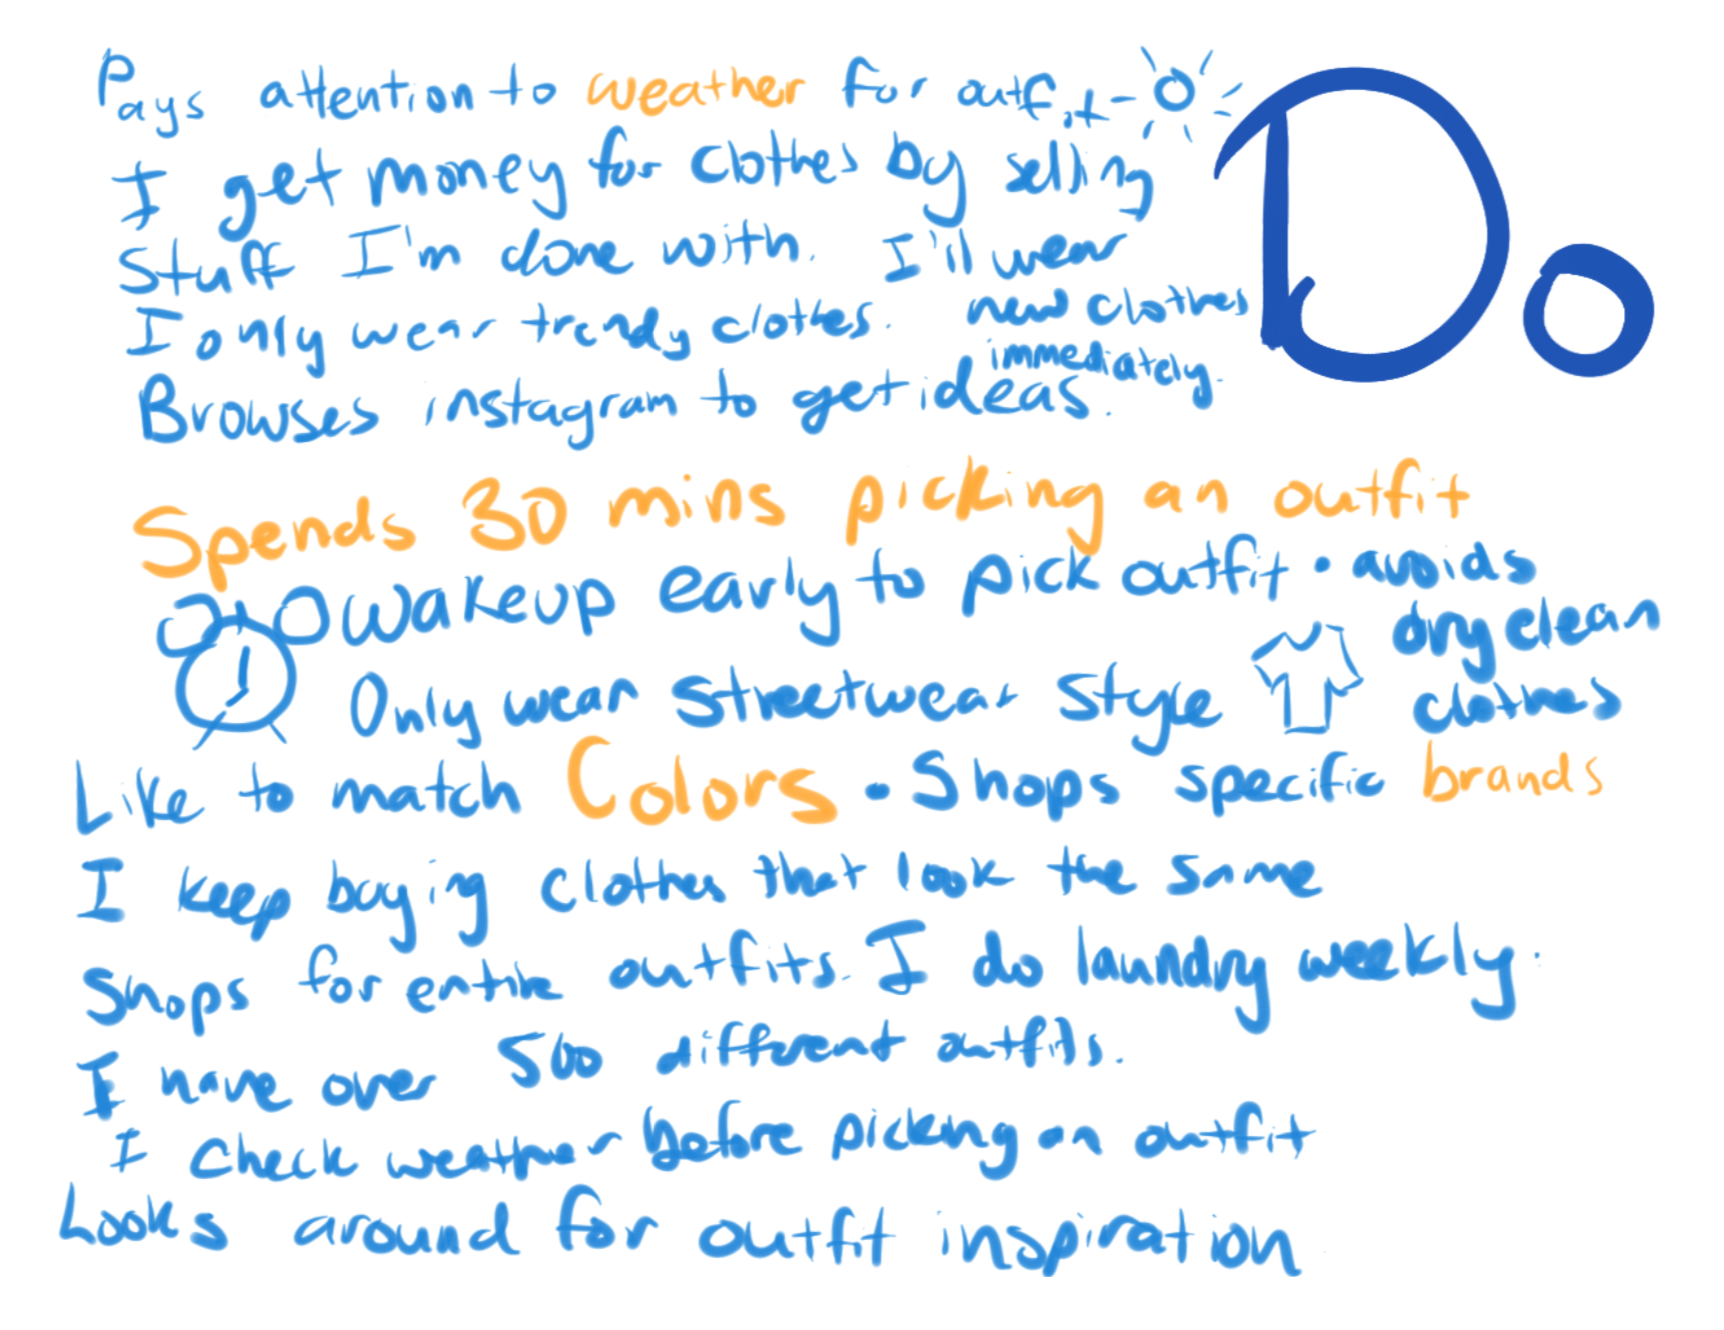 Do
Pays attention to weather for outfit
I get money for clothes by selling
stuff I'm done with. I'll wear
new clothes
immediately.
I only wear trendy clothes.
Browses instagram to get ideas.
Spends 30 mins picking an outfit
Wakeup early to pick outfit • avoids
dry clean
clothes
Only wear streetwear style
Like to match Colors • Shops specific brands
I keep buying clothes that look the same
Shops for entire outfits. I do laundry weekly.
I have over 500 different outfits.
I check weather before picking an outfit
Looks around for outfit inspiration